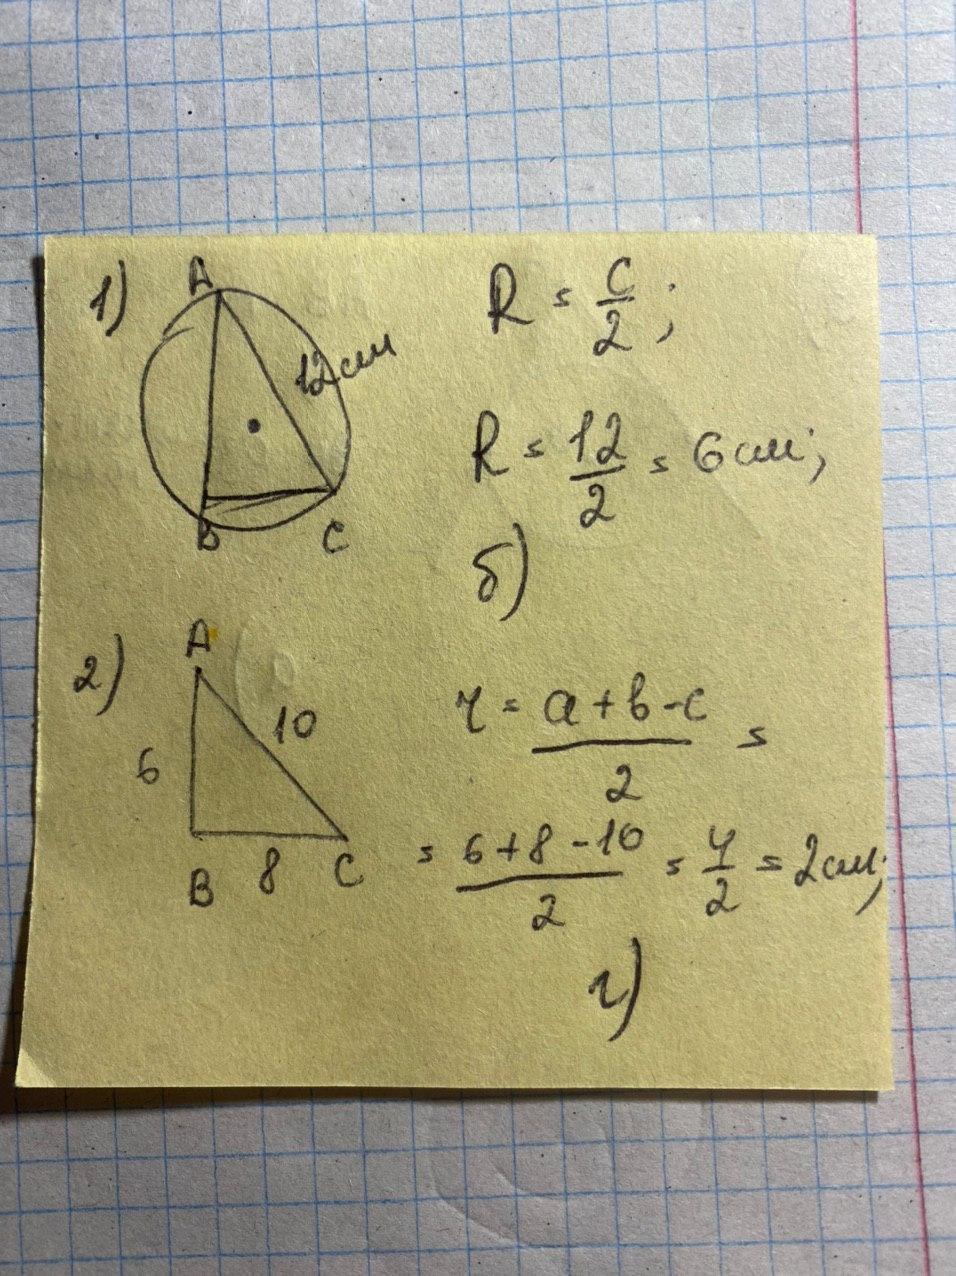 1)
A
12см
B
C
R = c/2;
R = 12/2 = 6 см;
б)
2)
A
6
10
B
8
C
r = a+b-c/2 =
= 6+8-10/2 = 4/2 = 2 см;
г)